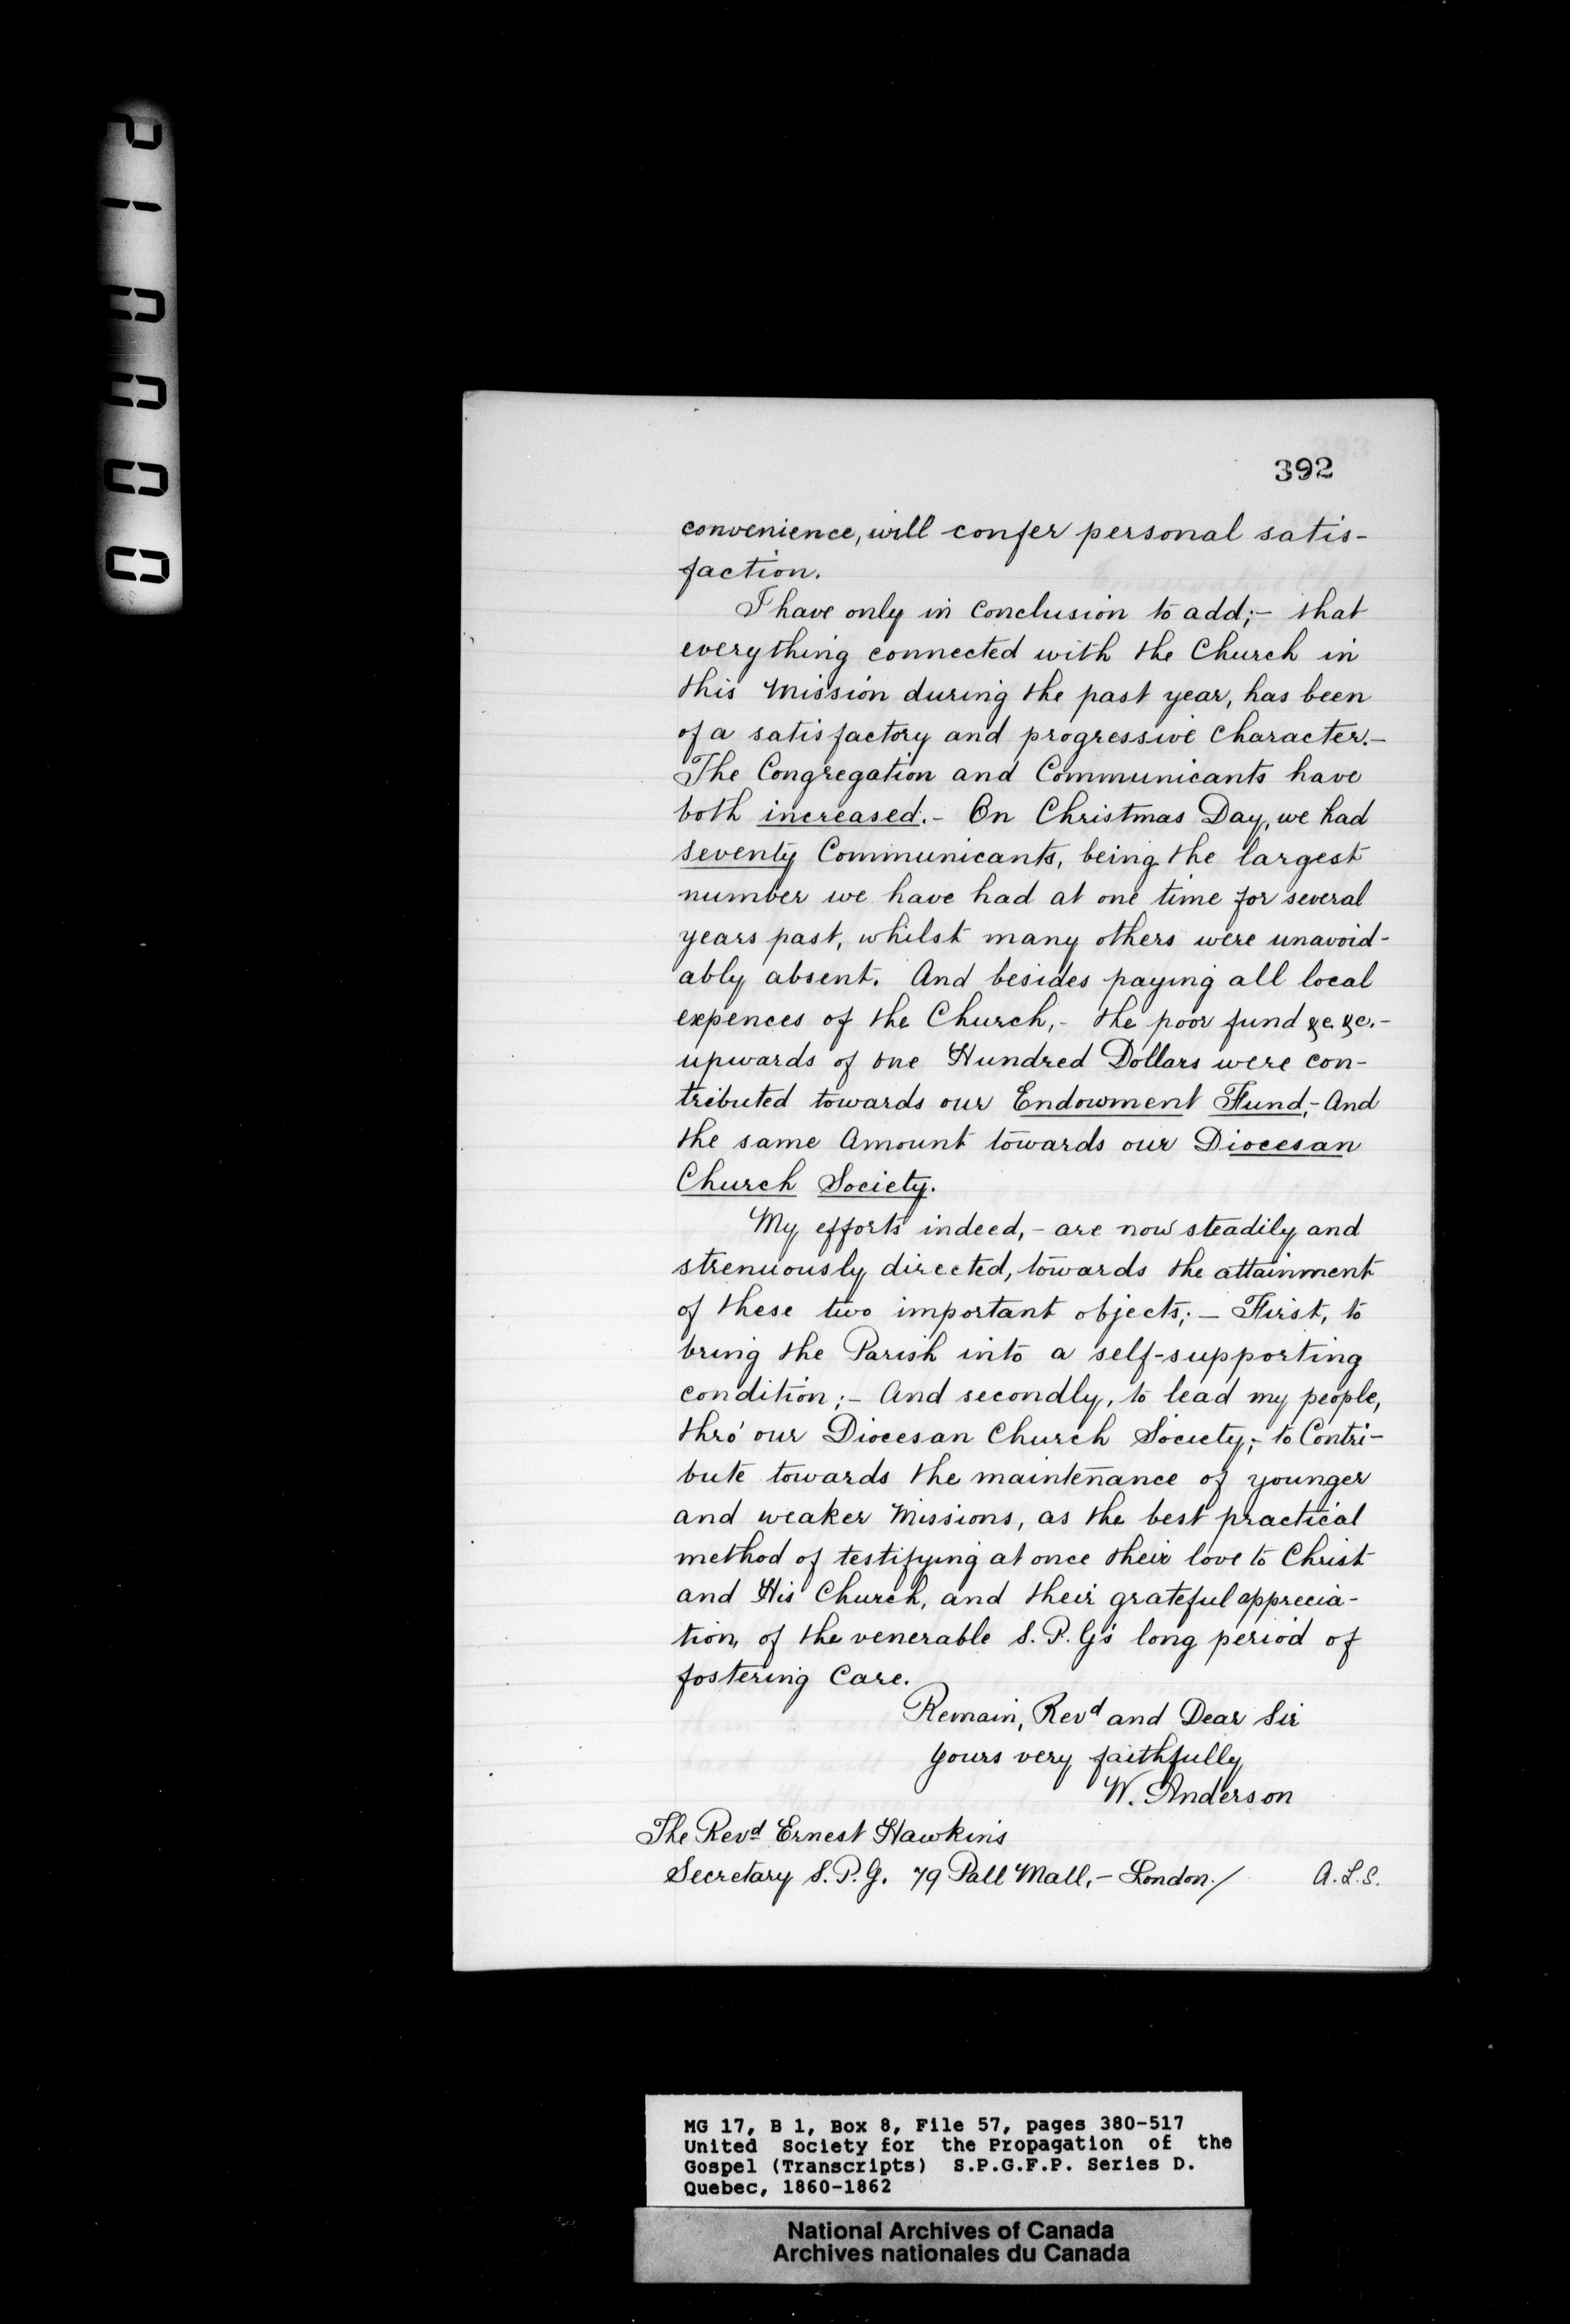 210000
392
convenience, will confer personal satis-
faction.
I have only in Conclusion to add;- that
everything connected with the Church in
this Mission during the past year, has been
of a satisfactory and progressive Character.-
The Congregation and Communicants have
both increased.- On Christmas Day, we had
seventy Communicants, being the largest
number we have had at one time for several
years past, whilst many others were unavoid-
ably absent. And besides paying all local
expences of the Church,- the poor fund &c. &c.-
upwards of one Hundred Dollars were con-
tributed towards our Endowment Fund,- And
the same Amount towards our Diocesan
Church Society.
My efforts indeed,- are now steadily and
strenuously directed, towards the attainment
of these two important objects;- First, to
bring the Parish into a self-supporting
condition;- And secondly, to lead my people,
thro' our Diocesan Church Society;- to Contri-
bute towards the maintenance of younger
and weaker Missions, as the best practical
method of testifying at once their love to Christ
and His Church, and their grateful apprecia-
tion, of the venerable S.P.G's long period of
fostering Care.
Remain, Revd and Dear Sir
Yours very faithfully
W. Anderson
The Revd Ernest Hawkins
Secretary S.P.G. 79 Pall Mall,- London./ A.L.S.
MG 17, B 1, Box 8, File 57, pages 380-517
United Society for the Propagation of the
Gospel (Transcripts) S.P.G.F.P. Series D.
Quebec, 1860-1862
National Archives of Canada
Archives nationales du Canada